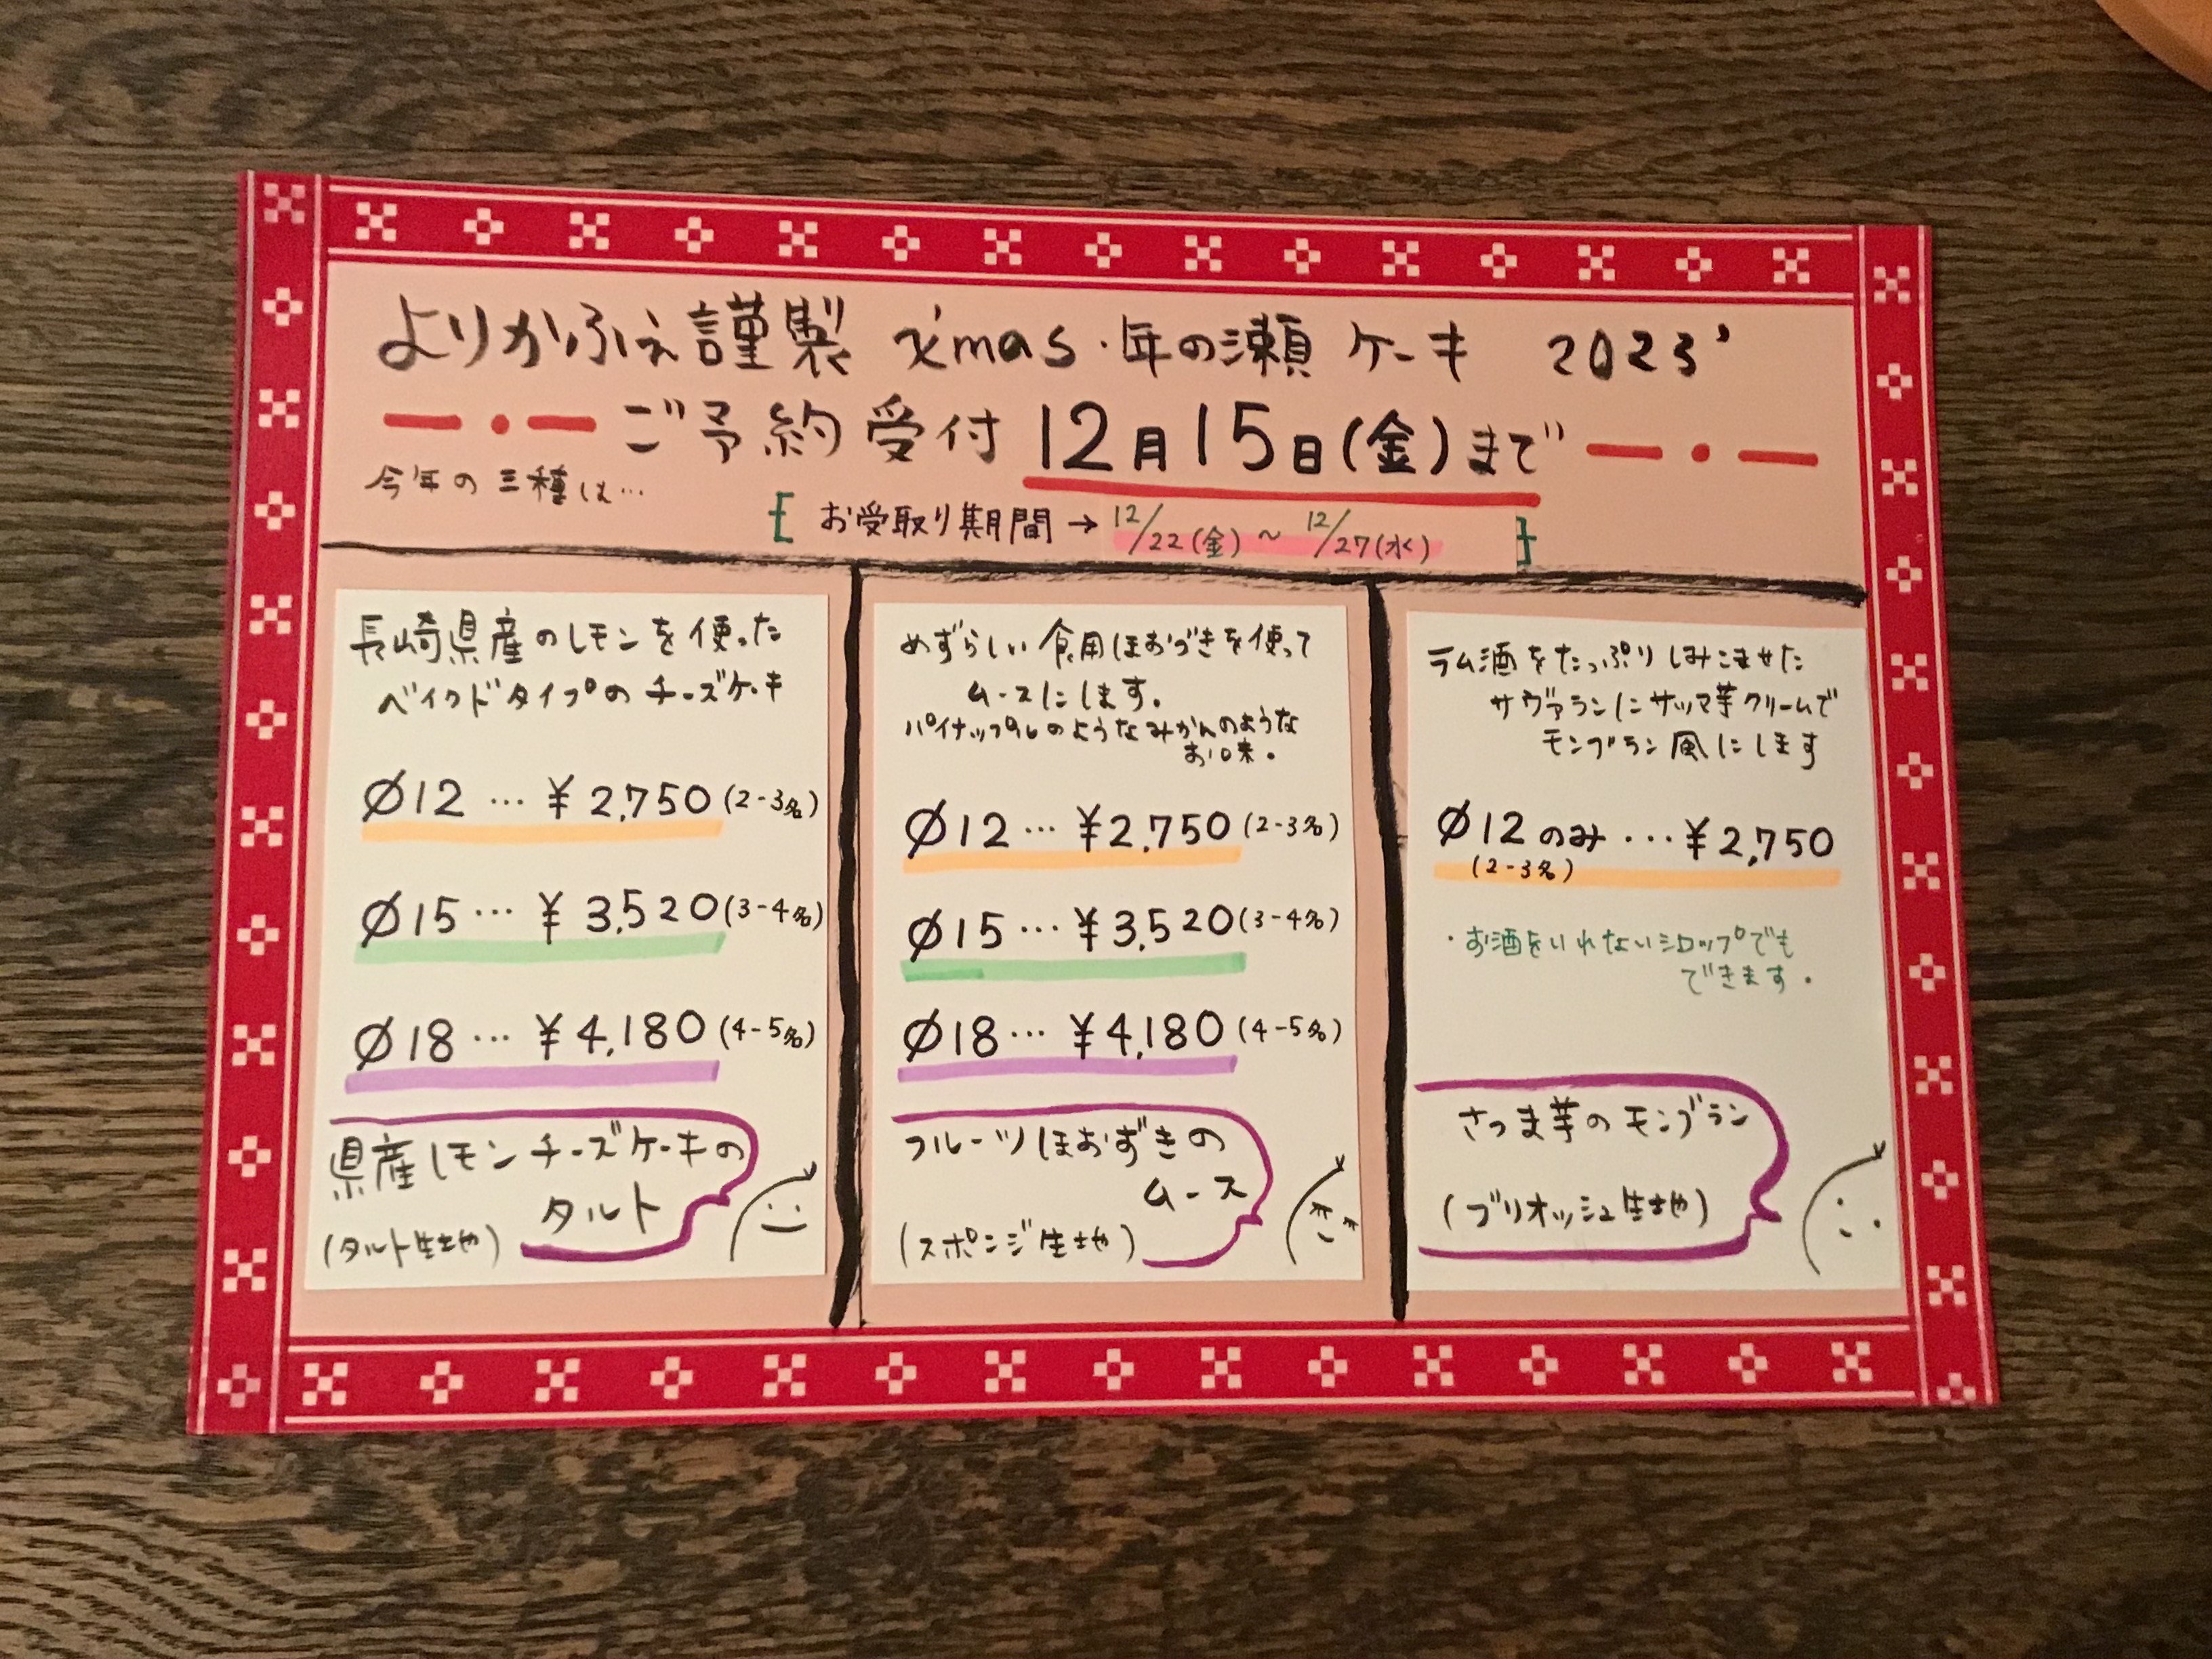 よりかふぇ謹製 x'mas・年の瀬 ケーキ 2023'
ご予約受付 12月15日(金)まで
今年の三種は…
お受取り期間→12/22(金)～12/27(水)
長崎県産のレモンを使った
ベイクドタイプのチーズケーキ
Ø12…¥2,750(2-3名)
Ø15…¥3,520(3-4名)
Ø18…¥4,180(4-5名)
県産レモンチーズケーキの
タルト
(タルト生地)
めずらしい食用ほおづきを使って
ムースにします。
パイナップルのようなみかんのような
お味。
Ø12…¥2,750(2-3名)
Ø15…¥3,520(3-4名)
Ø18…¥4,180(4-5名)
フルーツほおずきの
ムース
(スポンジ生地)
ラム酒をたっぷりしみこませた
サヴァランにサツマ芋クリームで
モンブラン風にします
Ø12のみ…¥2,750
(2-3名)
・お酒をいれないシロップでも
できます。
さつま芋のモンブラン
(ブリオッシュ生地)